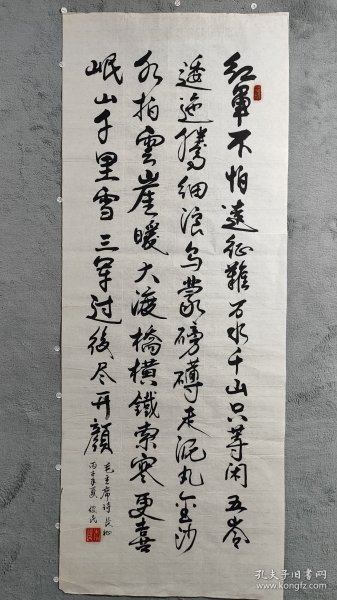 红軍不怕遠征難万水千山只等闲五岺
逶迤騰细浪乌蒙磅礴走泥丸金沙
水拍雲崖暖大渡橋横鐵索寒更喜
岷山千里雪三军过後尽开顏
毛主席诗长征
丙子年夏 俊民
孔夫子旧书网